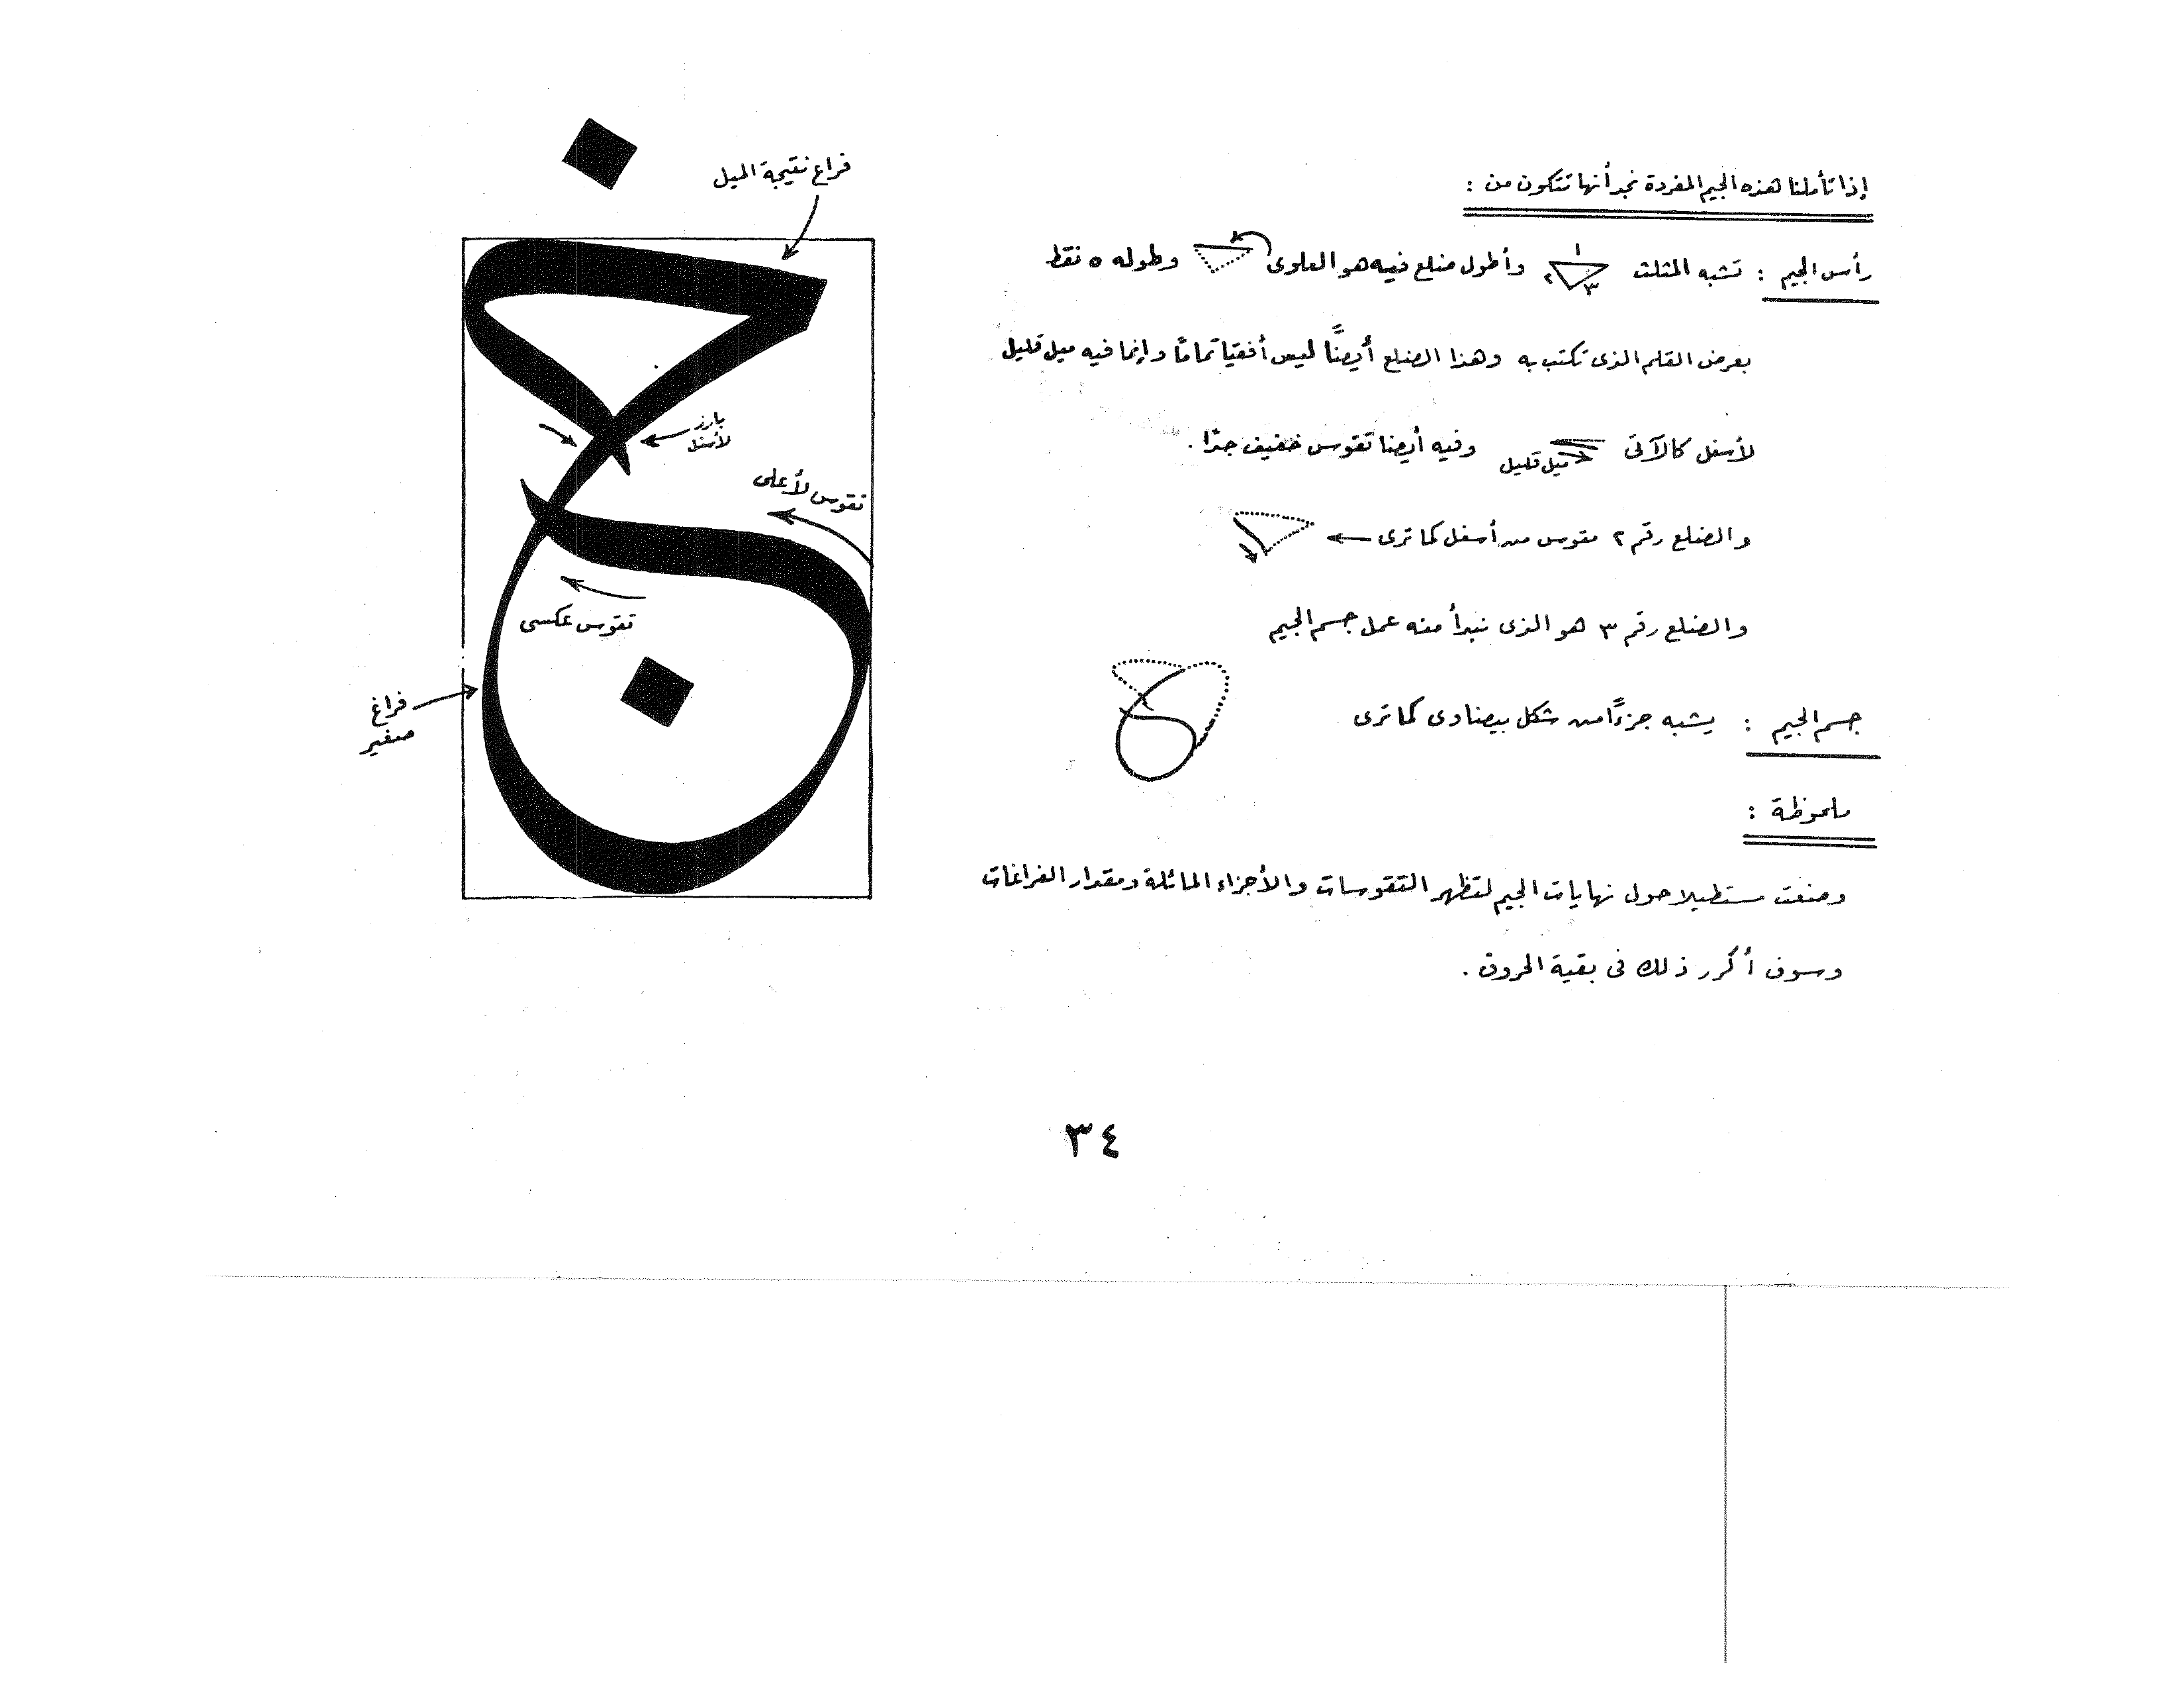 إذا تأملنا هذه الجيم المفردة نجد أنها تتكون من :
رأس الجيم : تشبه المثلث ١ ٢ ٣ وأطول ضلع فيه هو العلوى وطوله ٥ نقط
بعرض القلم الذى تكتب به وهذا الضلع أيضًا ليس أفقيا تمامًا وإنما فيه ميل قليل
لأسفل كالآتى ميل قليل وفيه أيضا تقوس خفيف جدًا .
والضلع رقم ٢ مقوس من أسفل كما ترى
والضلع رقم ٣ هو الذى نبدأ منه عمل جسم الجيم
جسم الجيم : يشبه جزءًا من شكل بيضاوى كما ترى
ملحوظة :
وضعت مستطيلا حول نهايات الجيم لتظهر التقوسات والأجزاء المائلة ومقدار الفراغات
وسوف أكرر ذلك فى بقية الحروف .
فراغ نتيجة الميل
بارز
لأسفل
تقوس لأعلى
تقوس عكسى
فراغ
صغير
ج
٣٤